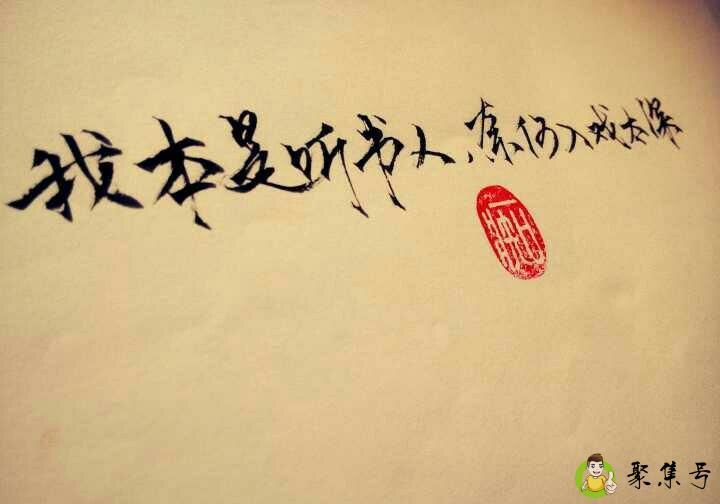 我本是听书人，奈何入戏太深
聚集号